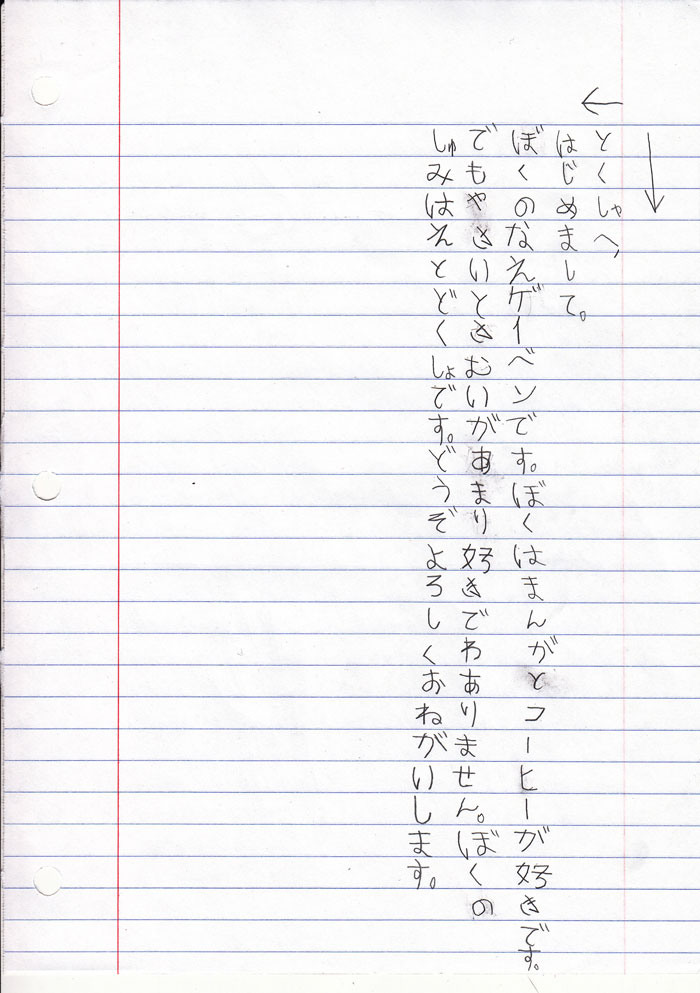 とくしゃへ、
はじめまして。
ぼくのなえゲイベンです。ぼくはまんがとコーヒーが好きです。
でもやさいとさむいがあまり好きでわありません。ぼくの
しゅみはえとどくしょです。どうぞよろしくおねがいします。